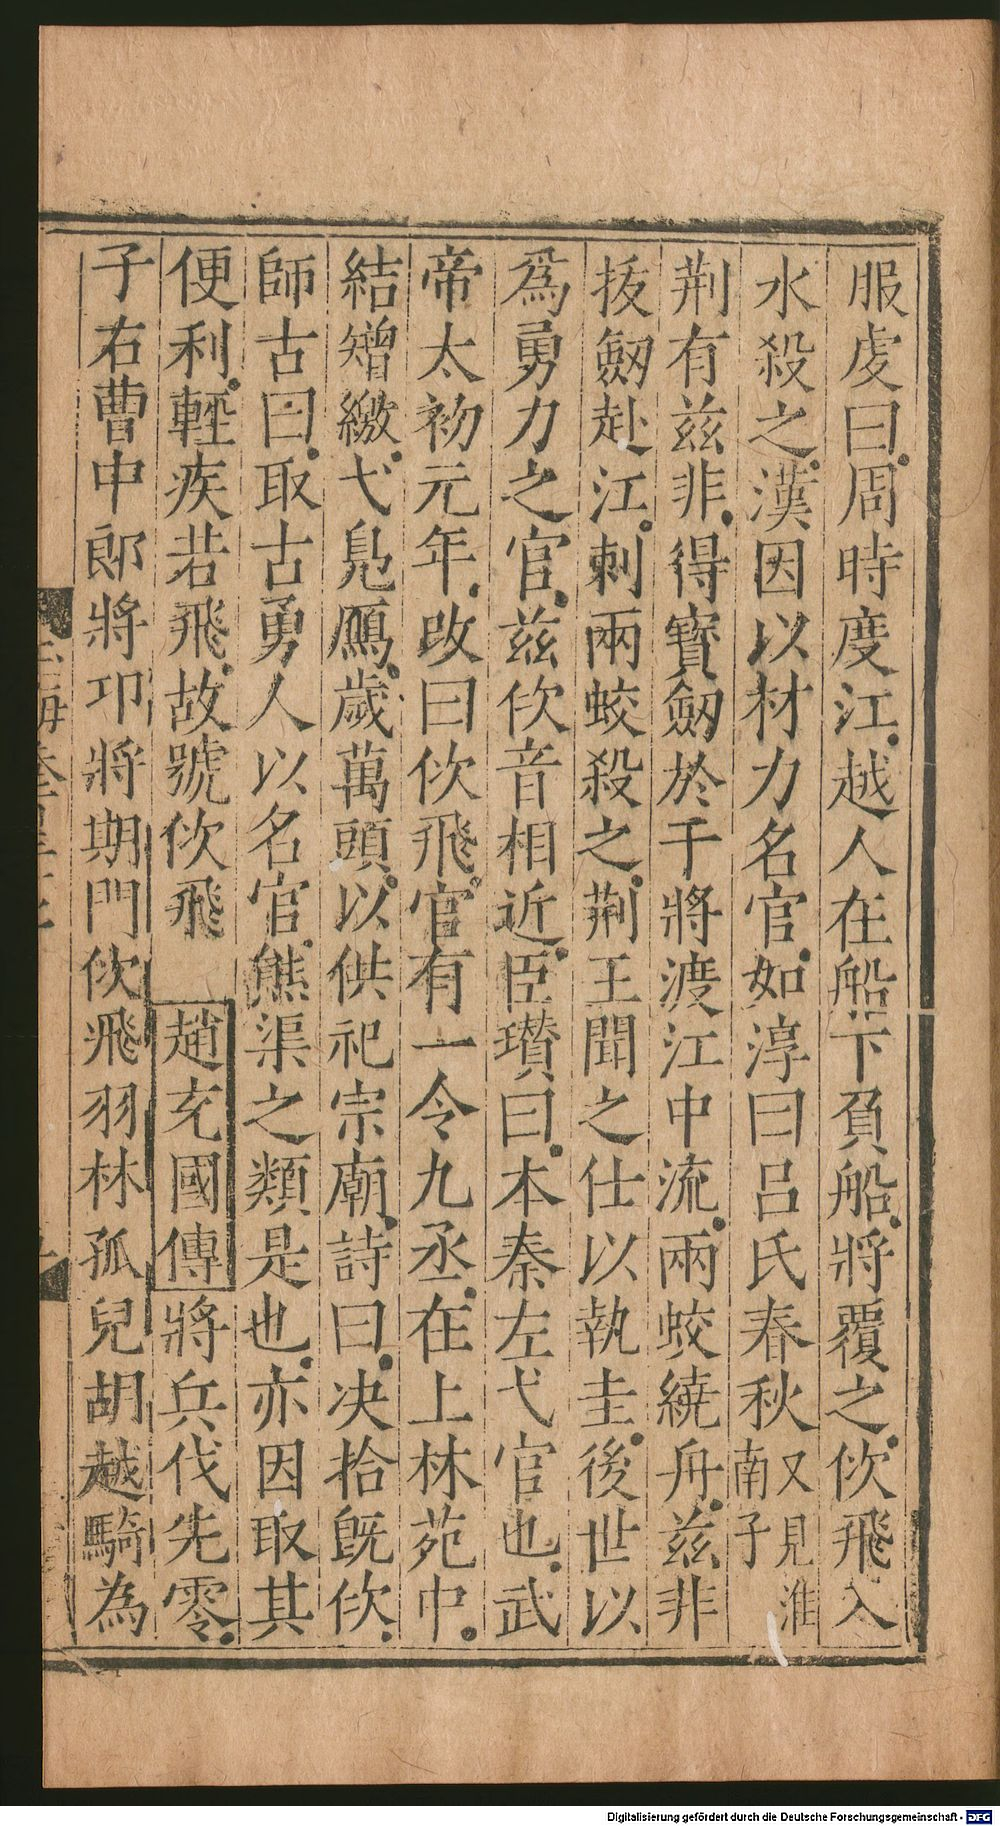 服虔曰周時度江越人在船下負船將覆之佽飛入
水殺之漢因以材力名官如淳曰呂氏春秋又見淮南子
荆有兹非得寶劔於干將渡江中流兩蛟繞舟兹非
拔劔赴江刺兩蛟殺之荆王聞之仕以執圭後世以
爲勇力之官兹佽音相近臣瓚曰本秦左弋官也武
帝太初元年改曰佽飛官有一令九丞在上林苑中
結矰繳弋鳧鴈歲萬頭以供祀宗廟詩曰决拾旣佽
師古曰取古勇人以名官熊渠之類是也亦因取其
便利輕疾若飛故號佽飛趙充國傳將兵伐先零
子右曹中郎將卬將期門佽飛羽林孤兒胡越騎為
玉海卷
Digitalisierung gefördert durch die Deutsche Forschungsgemeinschaft - DFG